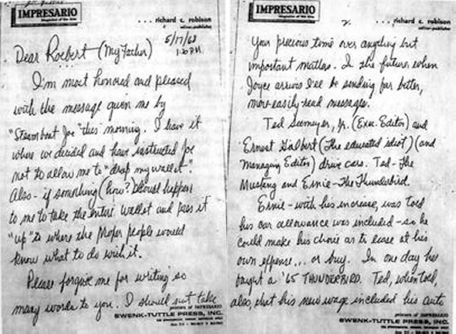 IMPRESARIO
... richard c. robison
editor-publisher
Dear Robert (My Father)
5/17/63
1:20 PM
I'm most honored and pleased
with the message given me by
"Steamboat Joe" this morning. I have it
where we decided and have instructed
not to allow me to "drop my wallet".
Also - if something (how?) should happen
to me to take the entire wallet and pass it
"up" to where the proper people would
know what to do with it.
Please forgive me for writing so
many words to you. I should not take
princes of IMPRESARIO
SWENK-TUTTLE PRESS, INC.
IMPRESARIO
2.
... richard c. robison
editor-publisher
Your precious time over anything but
important matters. In the future, when
Joyce arrives I'll be sending far better,
more easily read messages.
Ted Seemeyer, Jr. (Exec. Editor) and
Ernest Gilbert (The educated idiot) (and
Managing Editor) drive cars. Ted - The
Mustang and Ernie - The Thunderbird.
Ernie - with his increase, was told
his car allowance was included - so he
could make his choice as to lease at his
own expense... or buy. In one day he
bought a '65 THUNDERBIRD. Ted, when told
also that his new wage included his auto
SWENK-TUTTLE PRESS, INC.